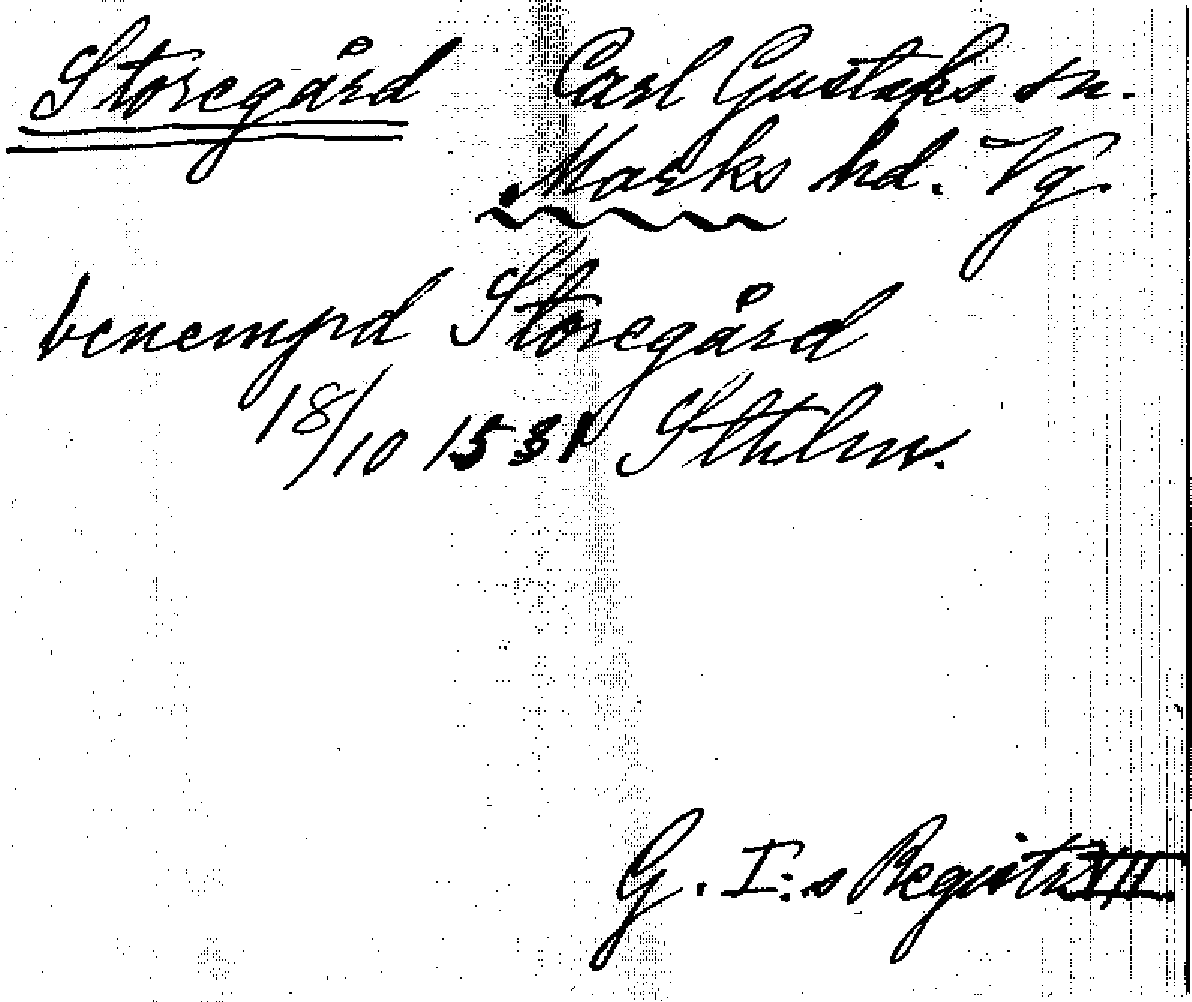 Storegård Carl Gustafs sn.
Marks hd. Vg.
benempd Storegård
18/10 1531 Sthlm.
G. I:s Registr. VII.